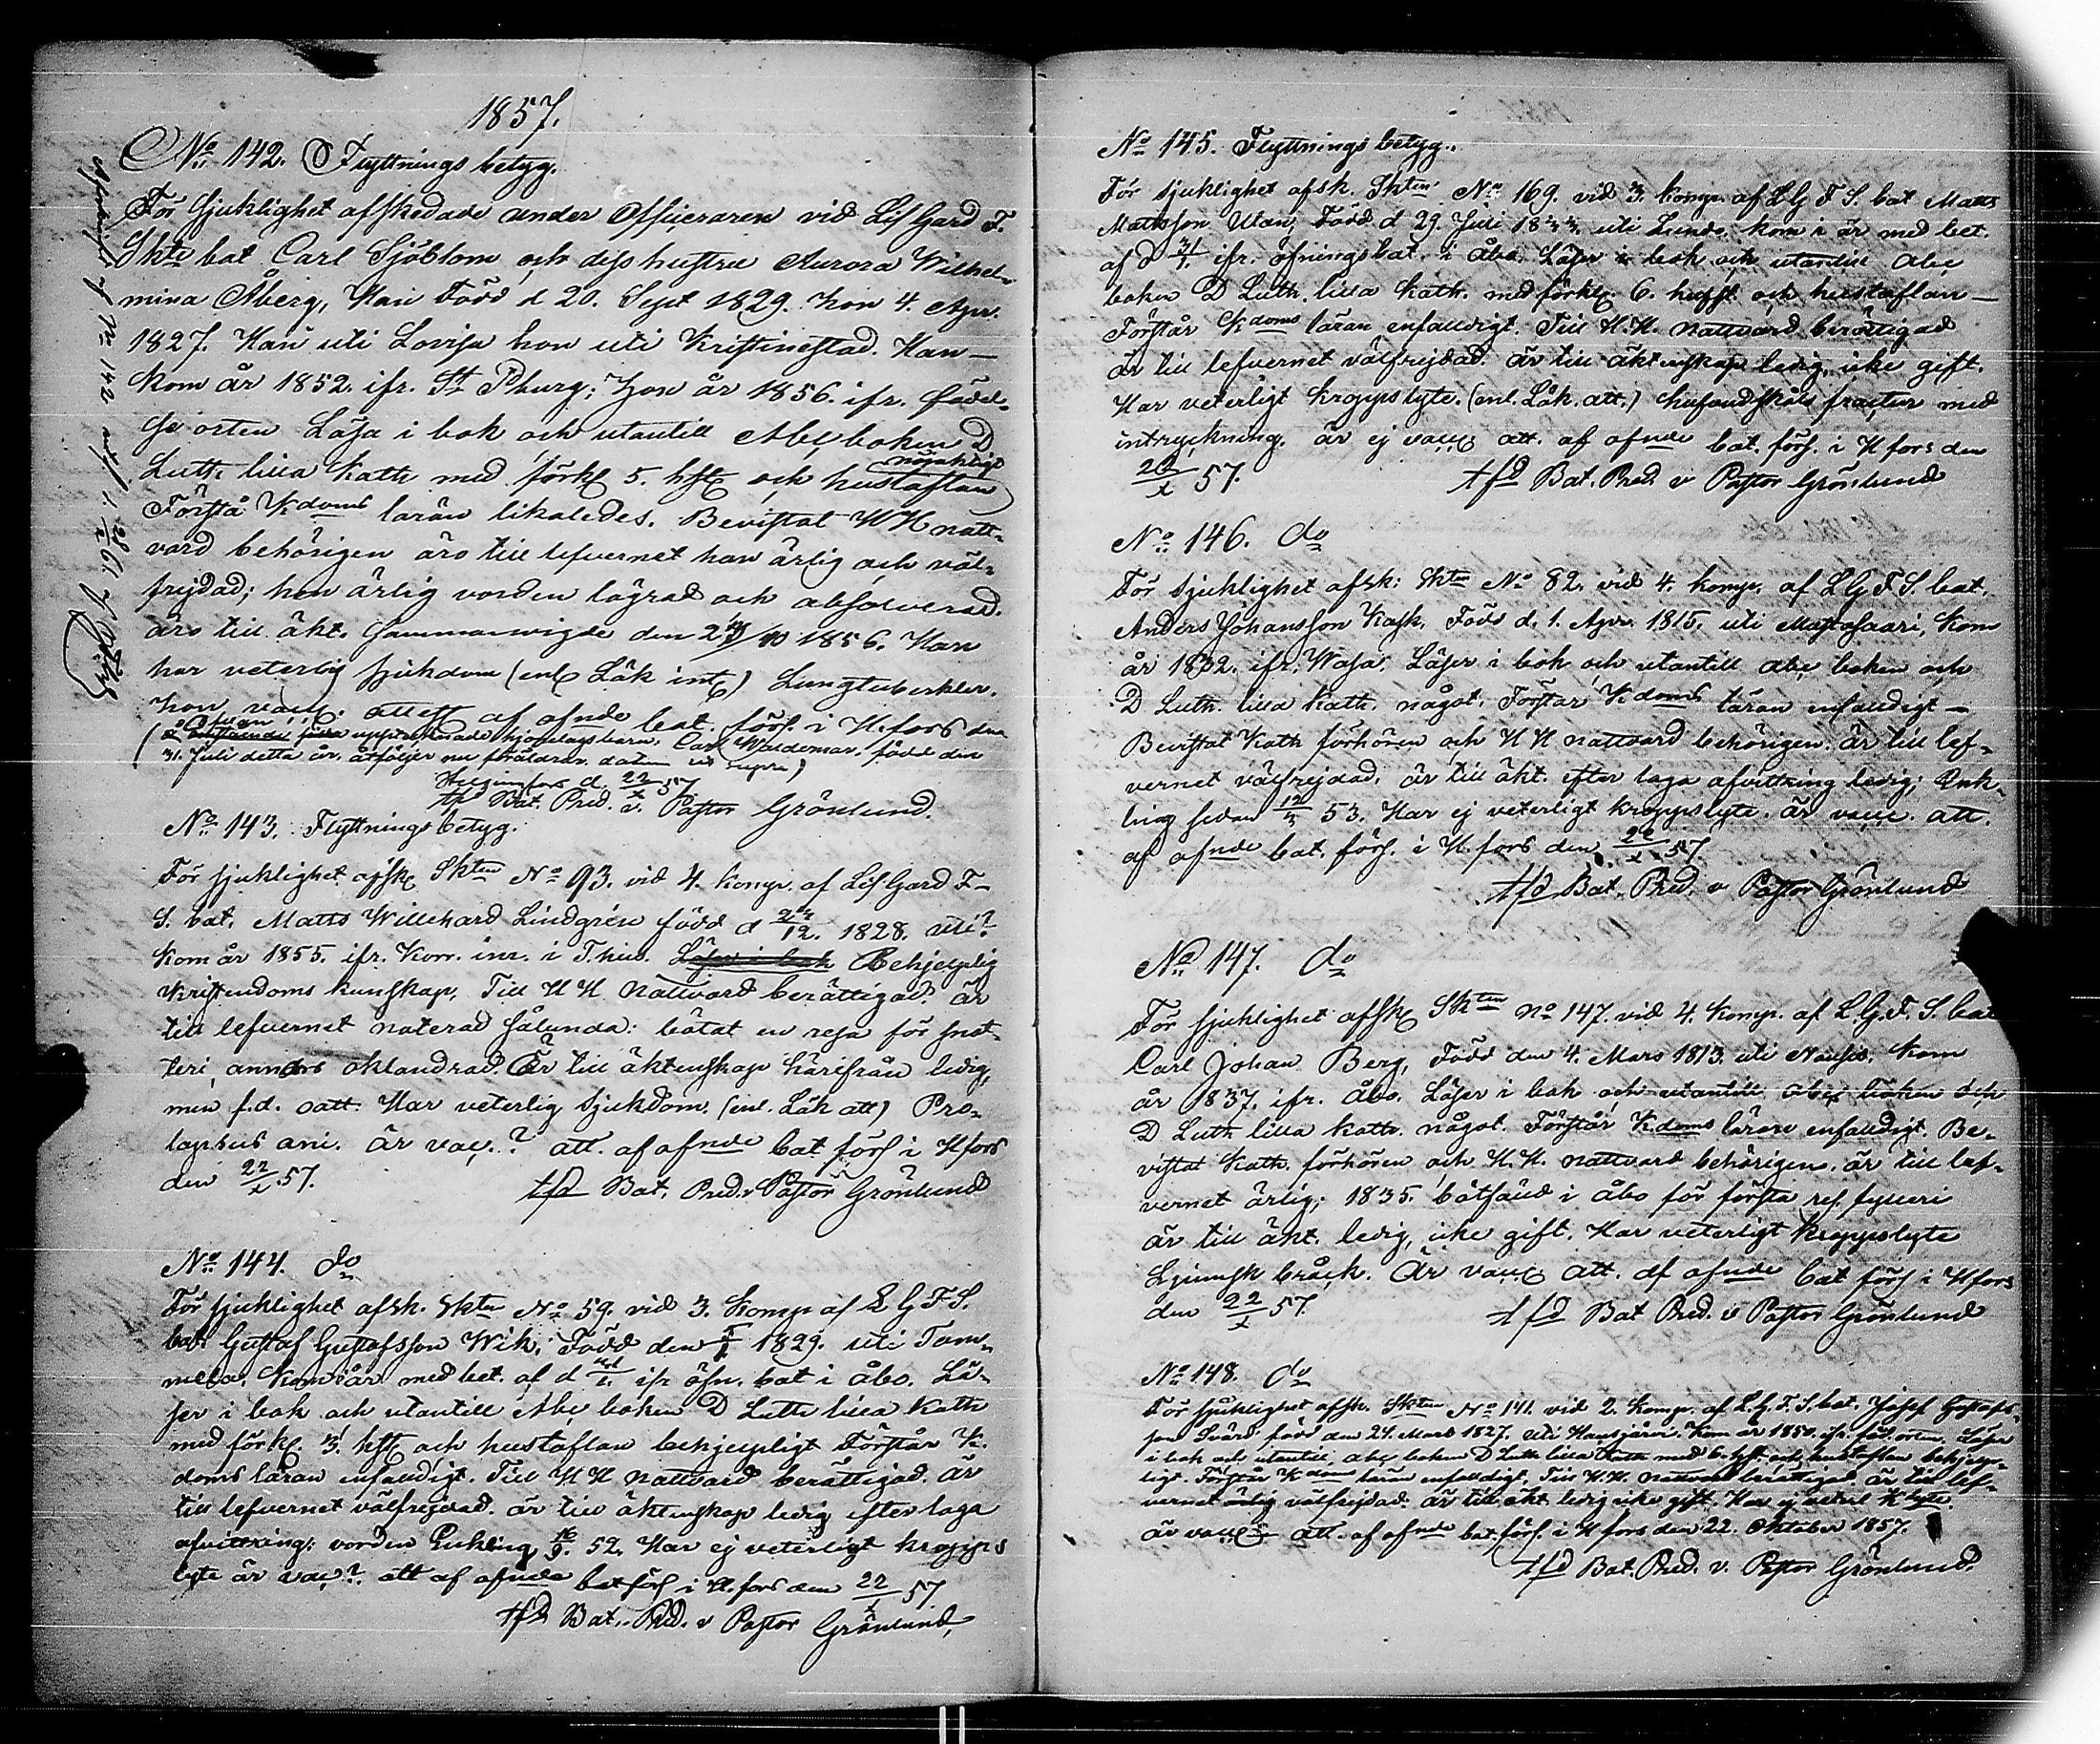 1857.
No 142. Flyttnings betyg.
För sjuklighet afskedade under Officeraren vid Lif Gard F.
Skte bat Carl Sjöblom och dess hustru Aurora Wilhel-
mina Åberg, Han Född d 20. Sept 1829. hon 4. Apr.
1827. Han uti Lovisa hon uti Kristinestad. Han
kom år 1852. ifr. St Pburg; Hon år 1856. ifr. födel-
se orten Läsa i bok och utantill Abc boken D
Luth lilla Kath med förkl 5. hft och hustaflan nöjaktigt
Förstå Kdoms läran likaledes. Bevistat HH natt-
vard behörigen äro till lefvernet han ärlig och väl-
frejdad; hon ärlig vorden lägrad och absolverad.
äro till äkt. sammanvigde den 1856. Han
har veterlig sjukdom (enl Läk int) Lungtuberkler.
hon vacc. attest af ofnde bat. förs. i H.fors den
uppteknade hjonelagsbarn, Carl Waldemar, född den
31. Juli detta år. åtföljer nu föräldrar. datum ut supra)
Helsingfors d. 22/x 57
tfd Bat. Pred. v. Pastor Grönlund.
No 143. Flyttnings betyg.
För sjuklighet afsk Skten No 93. vid 4. komp. af Lif Gard F-
S. bat. Matts Willehard Lindgrén född d 24/12. 1828. uti?
kom år 1855. ifr. Korr. inr. i T.hus. Läser i bok Behjelplig
Kristendoms kunskap, Till H H Nattvard berättigad. är
till lefvernet noterad sålunda: bötat en resa för snat-
teri, annars oklandrad. Är till äktenskap härifrån ledig,
men f.d. oatt. Har veterlig sjukdom. (enl. Läk att) Pro-
lapsus ani. är vac.? att. af ofnde bat förs i Hfors
den 22/x 57.
tfd Bat. Pred. v Pastor Grönlund
No 144. do
För sjuklighet afsk. Skten No 59. vid 3. Komp af L G F S.
bat. Gustaf Gustafsson Wik, Född den 1829. uti Tam-
mela. Kom i år med bet. af d ifr öfn. bat i Åbo. Lä-
ser i bok och utantill Abc boken D Luth lilla Kath
med förkl. 3. hft och hustaflan behjelpligt Förstår K.
doms läran enfaldigt. Till H H nattvard berättigad. är
till lefvernet välfrejdad. är till äktenskap ledig efter laga
afvittring; vorden Enkling 16/9. 52. Har ej veterligt kropps
lyte är vac? att af ofnde bat förs i H.fors den 22/x 57
tfd Bat. Pred. v Pastor Grönlund,
No 145. Flyttnings betyg.
För sjuklighet afsk. Skten No 169. vid 3. komp. af L G F S. bat Matts
Mattsson Utan, Född d 29. Juli 1833. uti Lundo. kom i år med bet.
af d ifr. öfningsbat. i Åbo. Läser i bok och utantill Abc
boken D Luth. lilla Kath. med förkl. 6. hufst. och hustaflan
Förstår Kdoms läran enfaldigt. Till H.H. nattvard berättigad
är till lefvernet välfrejdad. är till äktenskap ledig, icke gift.
Har veterligt kroppslyte. (enl. Läk. att.) hufvudskåls fractur med
intryckning. är ej vacc att. af ofnde bat. förs. i H fors den
22/x 57.
tfd Bat. Pred. v Pastor Grönlund
No 146. do
För sjuklighet afsk: Skten No 82. vid 4. komp. af L G F S. bat.
Anders Johansson Kask. Född d. 1. Apr. 1815. uti Mustasaari, kom
år 1832. ifr. Wasa. Läser i bok och utantill abc boken och
D Luth. lilla Kath. något. Förstår Kdoms läran enfaldigt
Bevistat Kath förhören och H H nattvard behörigen. är till lef-
vernet välfrejdad. är till äkt. efter laga afvittring ledig; Enk-
ling sedan 12/3 53. Har ej veterligt kroppslyte. är vacc. att.
af ofnde bat. förs. i H.fors den 22/x 57.
tfd Bat. Pred. v Pastor Grönlund
No 147. do
För sjuklighet afsk Skten No 147. vid 4. Komp. af L.G.F.S. bat
Carl Johan Berg, Född den 4. Mars 1813. uti Nousis. Kom
år 1837. ifr. Åbo. Läser i bok och utantill Abc boken och
D Luth lilla Kath. något. Förstår Kdoms läran enfaldigt. Be-
vistat Kath. förhören och H.H. nattvard behörigen. är till lef-
vernet ärlig; 1835. bötfäld i Åbo för första res. fylleri
är till äkt. ledig, icke gift. Har veterligt kroppslyte
Ljumsk bråck. Är vacc att. af ofnde bat förs i Hfors
den 22/x 57.
tfd Bat Pred. v Pastor Grönlund
No 148. do
För sjuklighet afsk. Skten No 141. vid 2. Komp. af L.G.F.S. bat. Josef Gustafs-
son Svärd född den 24. Mars 1827. uti Hausjärvi. Kom år 1854. ifr. föd.orten. Läser
i bok och utantill, abc boken D Luth lilla Kath med 5. hft. och hustaflan behjelp-
ligt. Förstår Kdoms läran enfaldigt. Till H.H. nattvard berättigad. är till lef-
vernet ärlig välfrejdad. är till äkt ledig icke gift. Har ej veterl K lyte
är vacc att. af ofnde bat. förs. i H fors den 22. Oktober 1857.
tfd Bat. Pred. v. Pastor Grönlund.